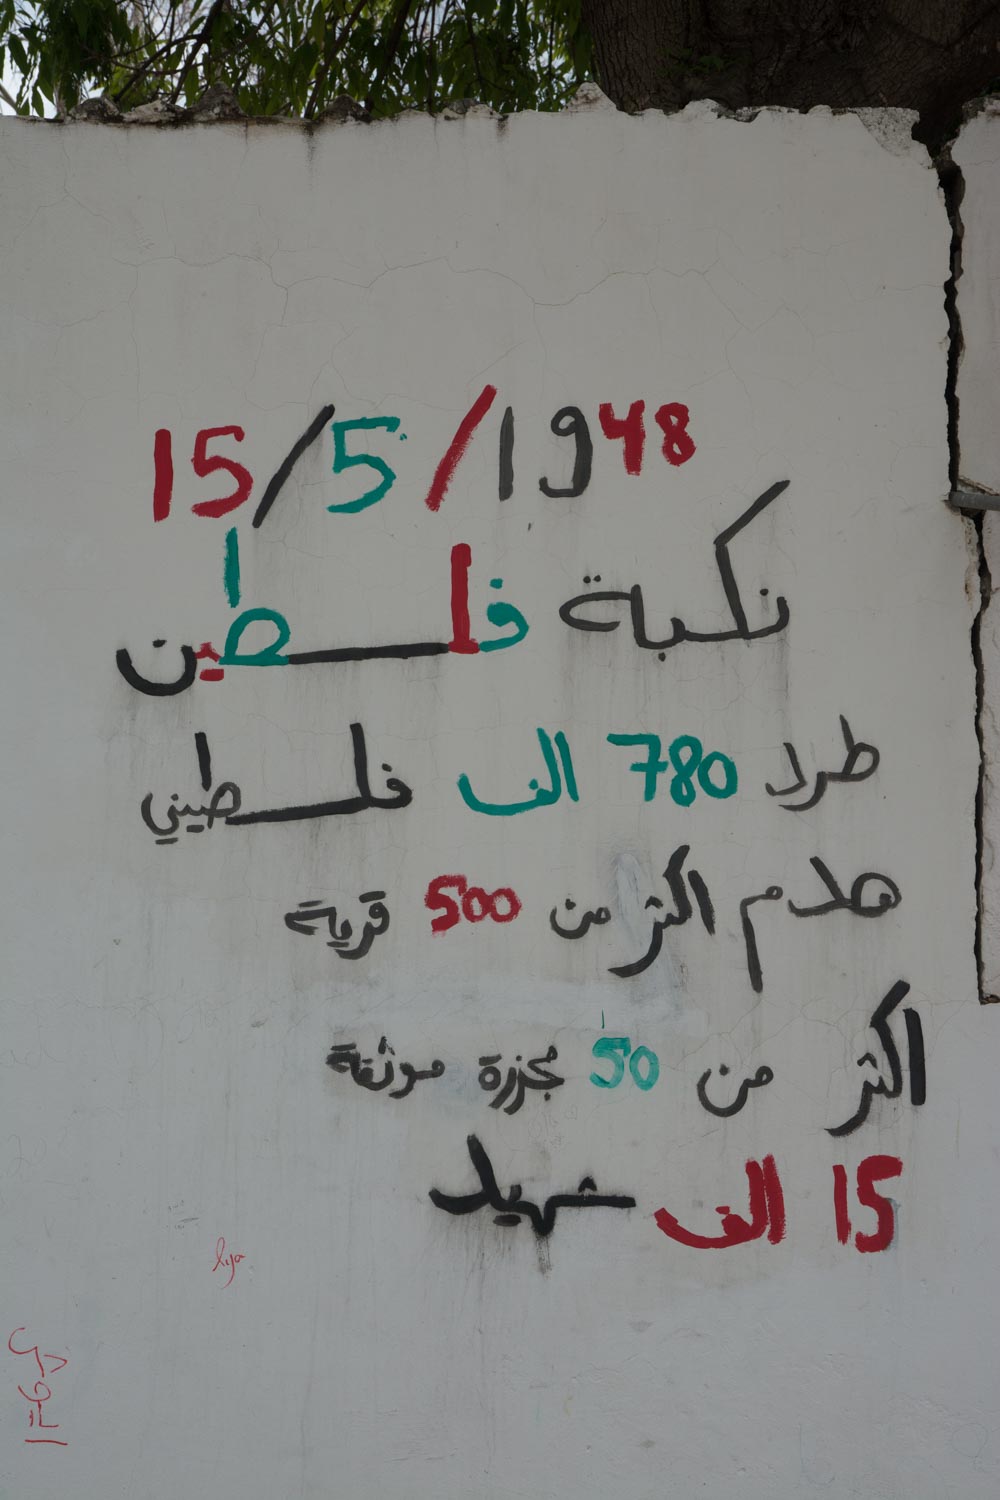 15/5/1948
نكبة فلسطين
طرد 780 الف فلسطيني
هدم اكثر من 500 قرية
اكثر من 50 مجزرة موثقة
15 الف شهيد